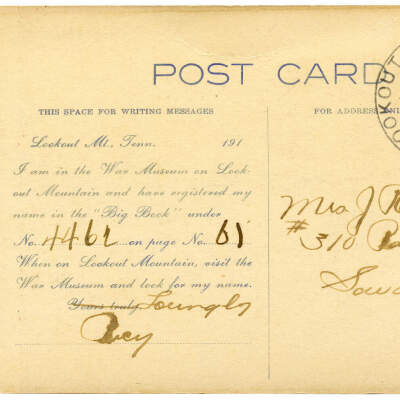 POST CARD
THIS SPACE FOR WRITING MESSAGES
FOR ADDRESS
Lookout Mt., Tenn. 191
I am in the War Museum on Look-
out Mountain and have registered my
name in the "Big Book" under
No. 4462 on page No. 61
When on Lookout Mountain, visit the
War Museum and look for my name.
Yours truly, Lovingly
LOOKOUT
Mrs J
# 310